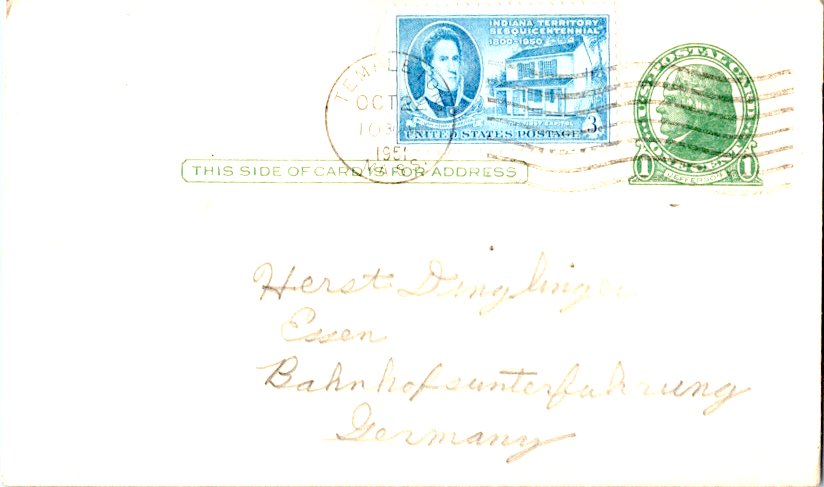 INDIANA TERRITORY
SESQUICENTENNIAL
1800-1950
UNITED STATES POSTAGE 3¢
U.S. POSTAL CARD
1 ONE CENT 1
JEFFERSON
OCT
1951
MASS.
THIS SIDE OF CARD IS FOR ADDRESS
Herst Dinglinger
Essen
Bahnhofsunterfahrung
Germany